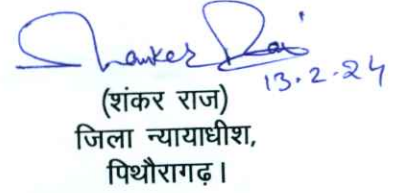 Shanker Raj
13.2.24
(शंकर राज)
जिला न्यायाधीश,
पिथौरागढ़।